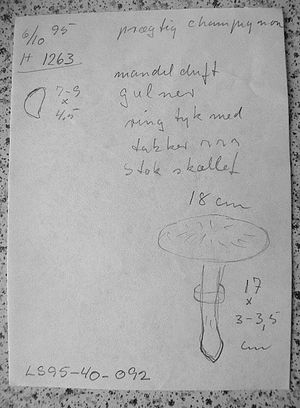 6/10 95
prægtig champignon
H 1263
7-9
x
4,5
mandelduft
gulner
ring tyk med
takker
stok skællet
18 cm
17
x
3-3,5
cm
LS95-40-092